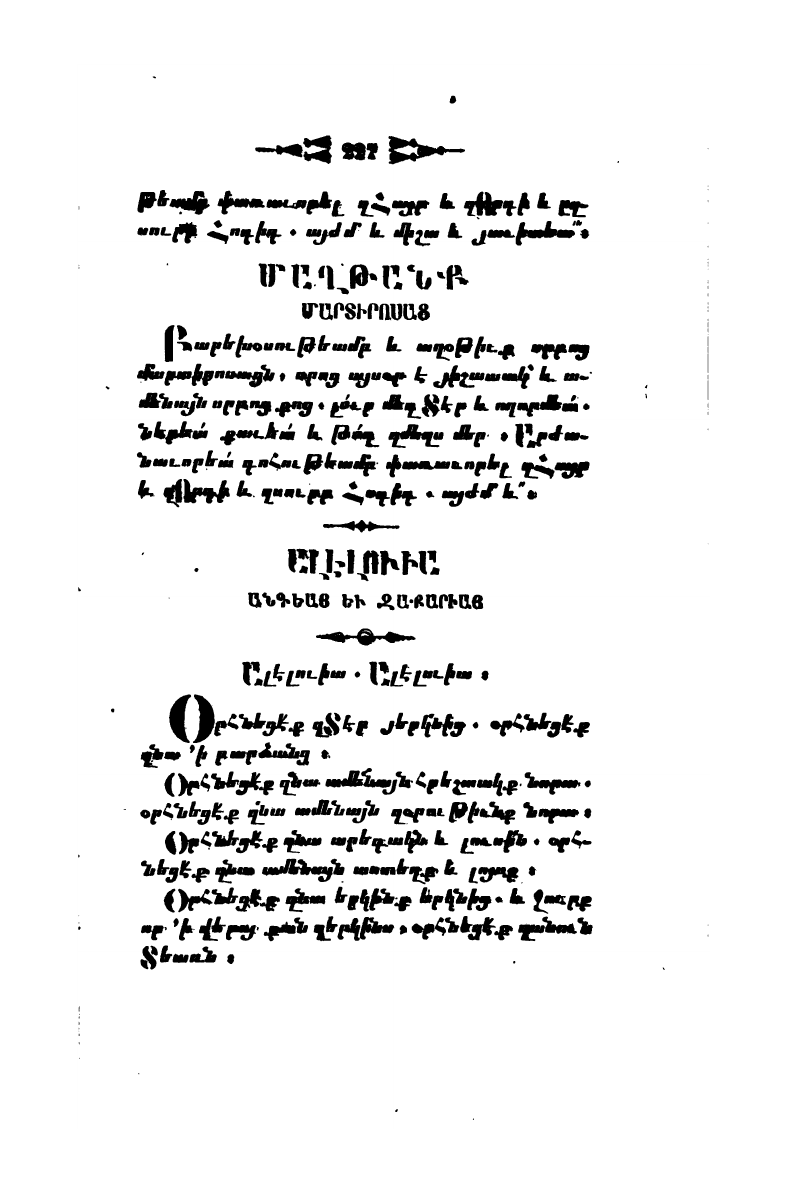 227
թեամբ փառաւորել զՀայր և զՈրդի և զը-
սուրբ Հոգիդ . այժմ և միշտ և յաւիտեա՟ս :
ՄԱՂԹԱՆՔ
ՄԱՐՏԻՐՈՍԱՑ
Բարեխօսութեամբ և աղօթիւք սրբոց
մարտիրոսացն , որոց այսօր է յիշատակ՝ և ա-
մենայն սրբոց քոց , լո՛ւր մեզ Տէր և ողորմեա՛ .
ներեա՛ քաւեա՛ և թո՛ղ զմեղս մեր . Արժա-
նաւորեա՛ գոհութեամբ փառաւորել զՀայր
և զՈրդի և զսուրբ Հոգիդ . այժմ և՟ :
ԱԼԷԼՈՒԻԱ
ԱՆԳԵԱՅ ԵՒ ԶԱՔԱՐԻԱՅ
Ալէլուիա . Ալէլուիա :
Օրհնեցէք զՏէր յերկնից . օրհնեցէք
զնա ՚ի բարձանց :
Օրհնեցէք զնա ամենայն հրեշտակք նորա .
օրհնեցէք զնա ամենայն զօրութիւնք նորա :
Օրհնեցէք զնա արեգակն և լուսին . օրհ-
նեցէք զնա ամենայն աստեղք և լոյսք :
Օրհնեցէք զնա երկինք երկնից . և ջուրք
որ ՚ի վերոյ քան զերկինս , օրհնեցէք զանուն
Տեառն :